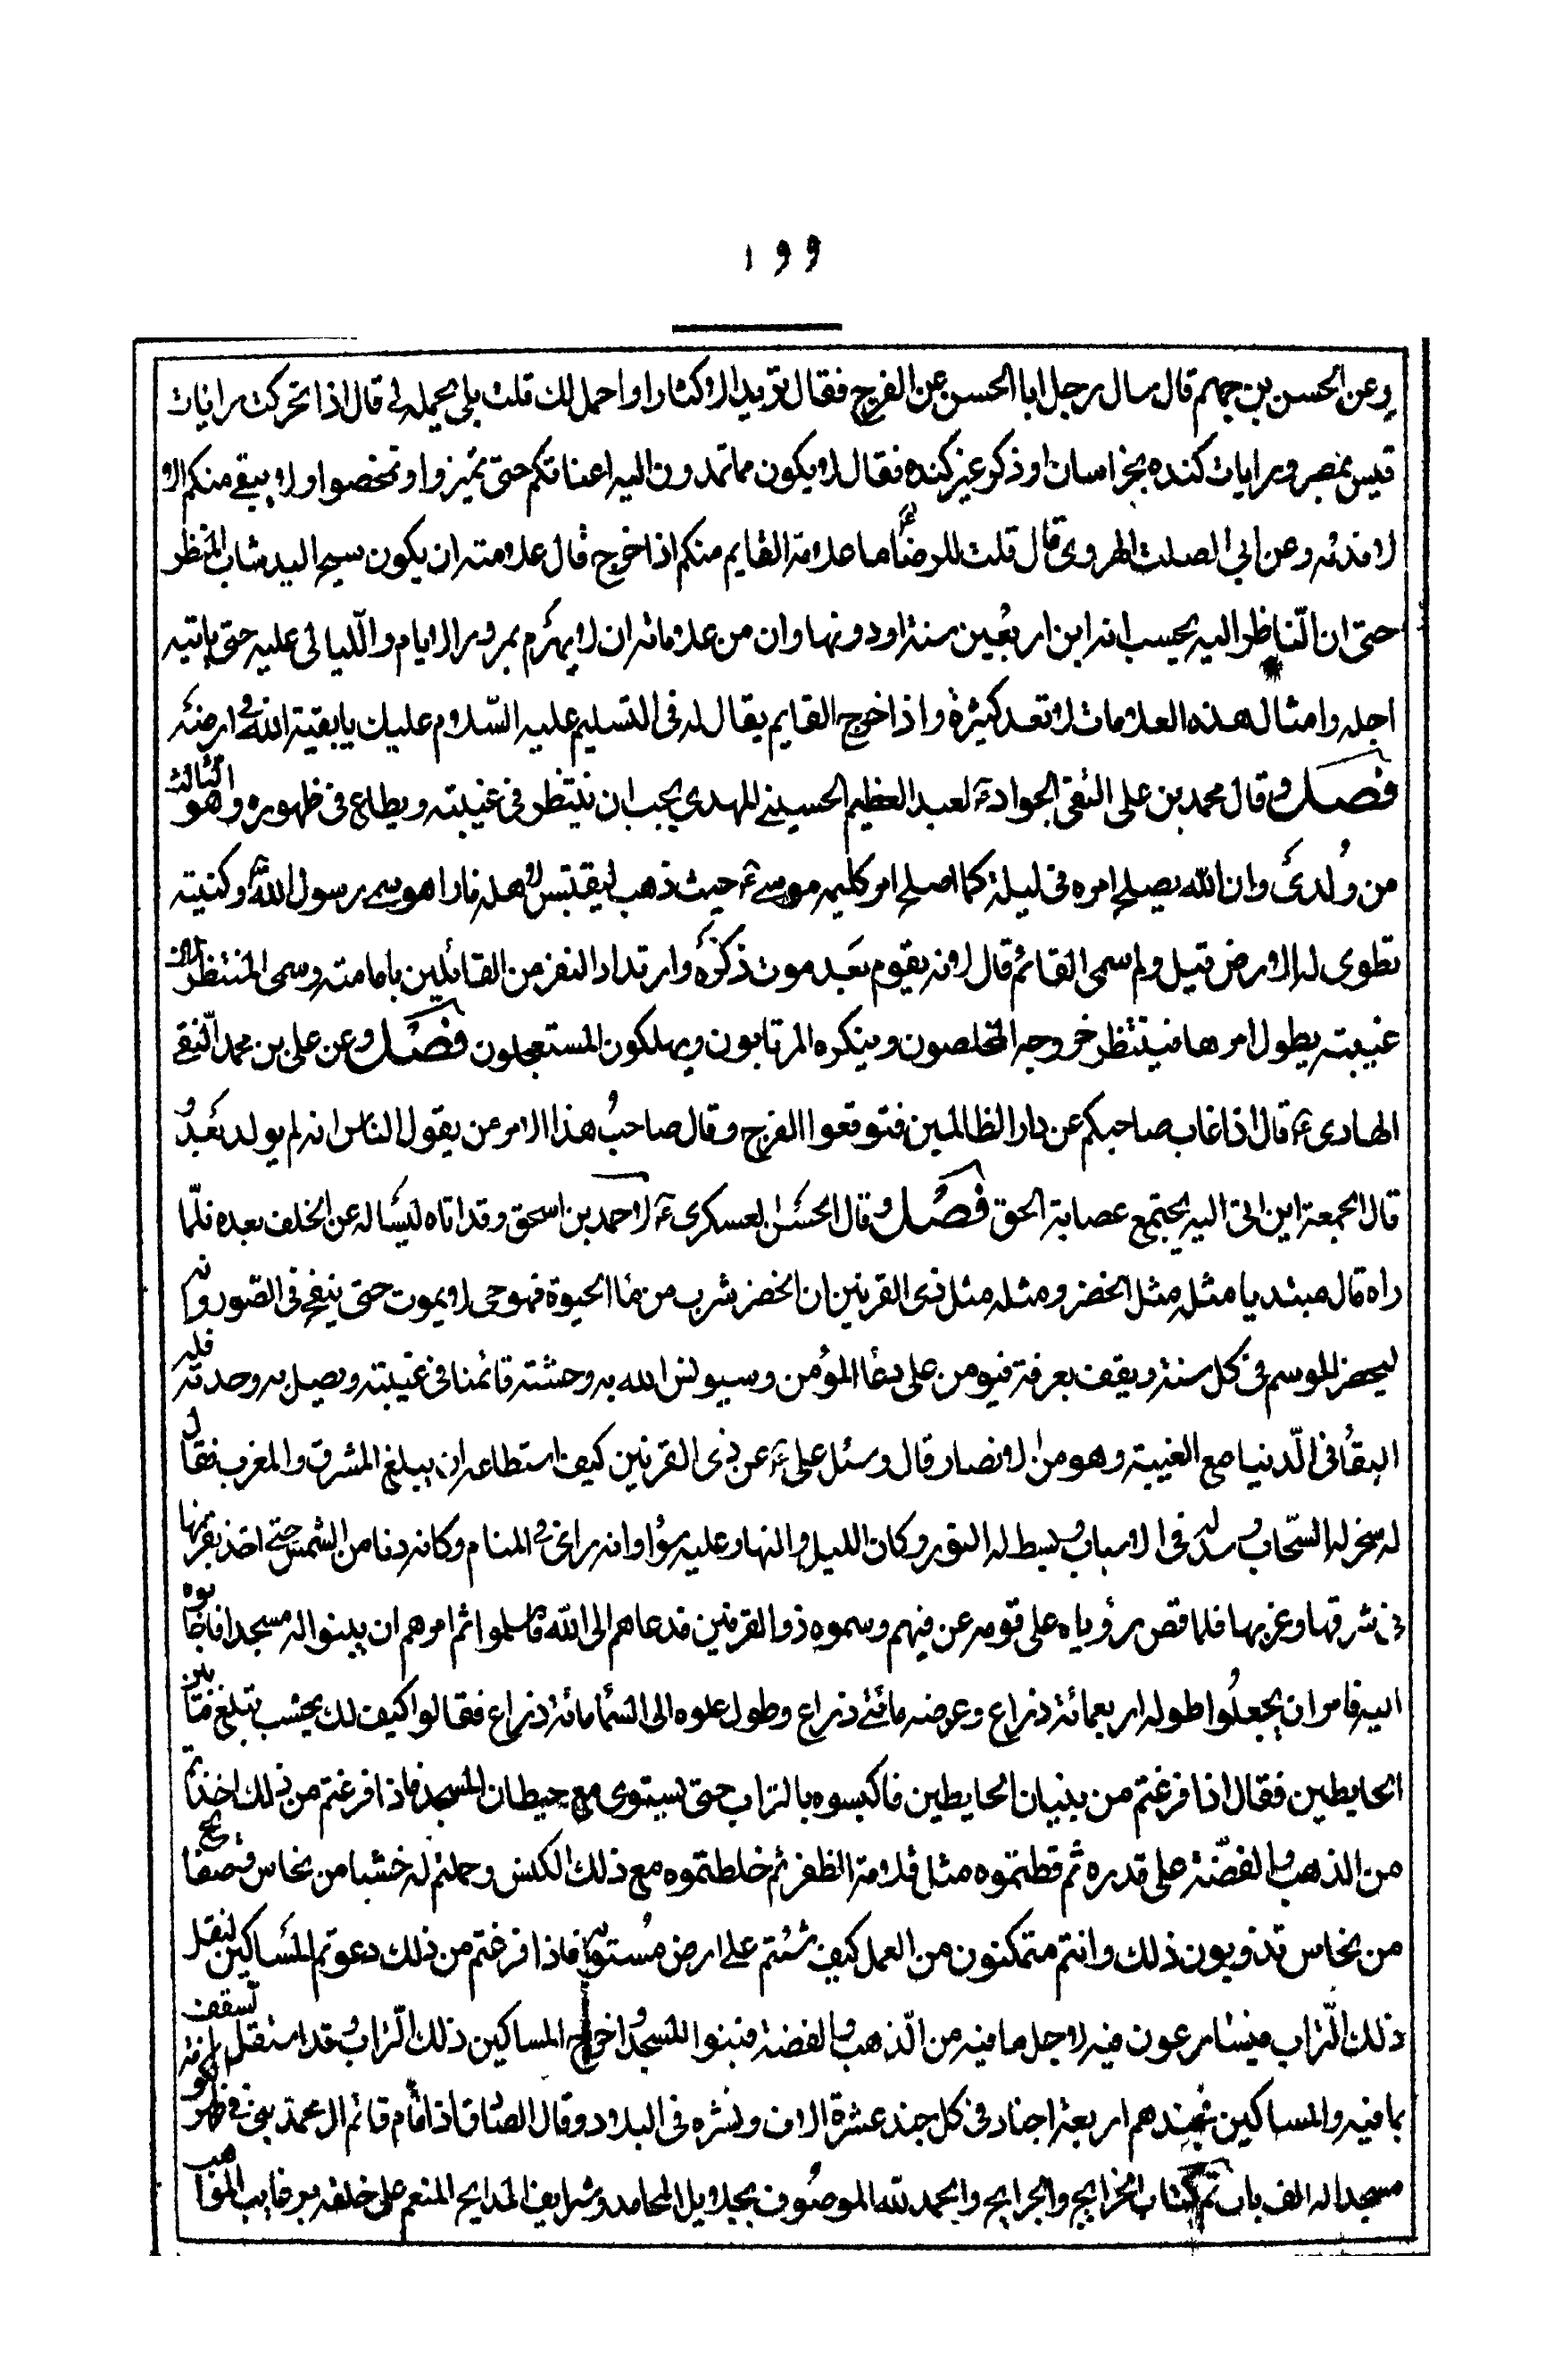 ١٩٩
وعن الحسن بن جهم قال سال رجل ابا الحسن عن الفرج فقال تريد الاكثار او احمل لك قلت بلى تحمله لى قال اذا تحركت رايات
قيس بمصر ورايات كنده بخراسان او ذكر غير كنده فقال لا يكون ما تمدون اليه اعناقكم حتى تميزوا وتمحصوا ولا يبقى منكم الا
الاندر وعن ابى الصلت الهروى قال قلت للرضا ما علامة القايم منكم اذا خرج قال علامته ان يكون شيخ السن شاب المنظر
حتى ان الناظر اليه يحسب انه ابن اربعين سنة او دونها وان من علاماته ان لا يهرم بمرور الايام والليالى عليه حتى ياتيه
اجله وامثال هذه العلامات لا تعد كثيرة واذا خرج القايم يقال له فى التسليم عليه السلام عليك يا بقية الله فى ارضه
فصل وقال محمد بن على التقى الجواد ع لعبد العظيم الحسينى المهدى يجب ان ينتظر فى غيبته ويطاع فى ظهوره وهو الثالث
من ولدى وان الله يصلح امره فى ليلة كما اصلح امر كليمه موسى ع حيث ذهب ليقتبس لاهله نارا هو سمى رسول الله وكنيته
تطوى له الارض قيل ولم سمى القائم قال لانه يقوم بعد موت ذكره وارتداد النفر من القائلين بامامته وسمى المنتظر لان
غيبته يطول امرها فينتظر خروجه المخلصون وينكره المرتابون ويهلكون المستعجلون فصل وعن على بن محمد النقى
الهادى ع قال اذا غاب صاحبكم عن دار الظالمين فتوقعوا الفرج وقال صاحب هذا الامر من يقول الناس انه لم يولد بعد و
قال الجمعة ابن ابنى اليه يجتمع عصابة الحق فصل وقال الحسن العسكرى ع لاحمد بن اسحق وقد اتاه ليساله عن الخلف بعده فلما
راه قال مبتديا مثله مثل الخضر ومثله مثل ذى القرنين ان الخضر شرب من ماء الحيوة فهو حى لا يموت حتى ينفخ فى الصور وانه
ليحضر الموسم فى كل سنة ويقف بعرفة فيومن على دعاء المؤمن وسيونس الله به وحشة قائمنا فى غيبته ويصل به وحدته فله
البقاء فى الدنيا مع الغيبة وهو من الانصار قال وسئل على ع عن ذى القرنين كيف استطاع ان يبلغ المشرق والمغرب فقال
له سخر له السحاب ومد له فى الاسباب وبسط له النور وكان الليل والنهار عليه سواء وانه راى فى المنام وكانه دنا من الشمس حتى اخذ بقرنيها
فى شرقها وغربها فلما قص رؤياه على قومه عن فيهم وسموه ذو القرنين فدعاهم الى الله فاسلموا ثم امرهم ان يبنوا له مسجدا فاجابوه
اليه فامر ان يجعلوا طوله اربعمائة ذراع وعرضه مائتى ذراع وطول علوه الى السماء مائة ذراع فقالوا كيف لك بخشب تبلغ ما بين
الحايطين فقال اذا فرغتم من بنيان الحايطين فاكبسوه بالتراب حتى يستوى مع حيطان المسجد فاذا فرغتم من ذلك اخذتم
من الذهب والفضة على قدره ثم قطعتموه مثل قلامة الظفر ثم خلطتموه مع ذلك الكبس وعملتم له خشبا من نحاس وصفايح
من نحاس تذوبون ذلك وانتم متمكنون من العمل كيف شئتم على ارض مستوية فاذا فرغتم من ذلك دعوتم المساكين لنقل
ذلك التراب فيسارعون فيه لاجل ما فيه من الذهب والفضة فبنوا المسجد واخرج المساكين ذلك التراب وقد استقل السقف
بما فيه والمساكين فجندهم اربعة اجناد فى كل جند عشرة الاف ونشرهم فى البلاد وقال الصادق اذا قام قائم ال محمد بنى فى ظهر الكوفة
مسجدا له الف باب تم كتاب الخرايج والجرايح والحمد لله الموصوف بجلايل المحامد وشرايف المدايح المنعم على خلقه برغايب المواهب